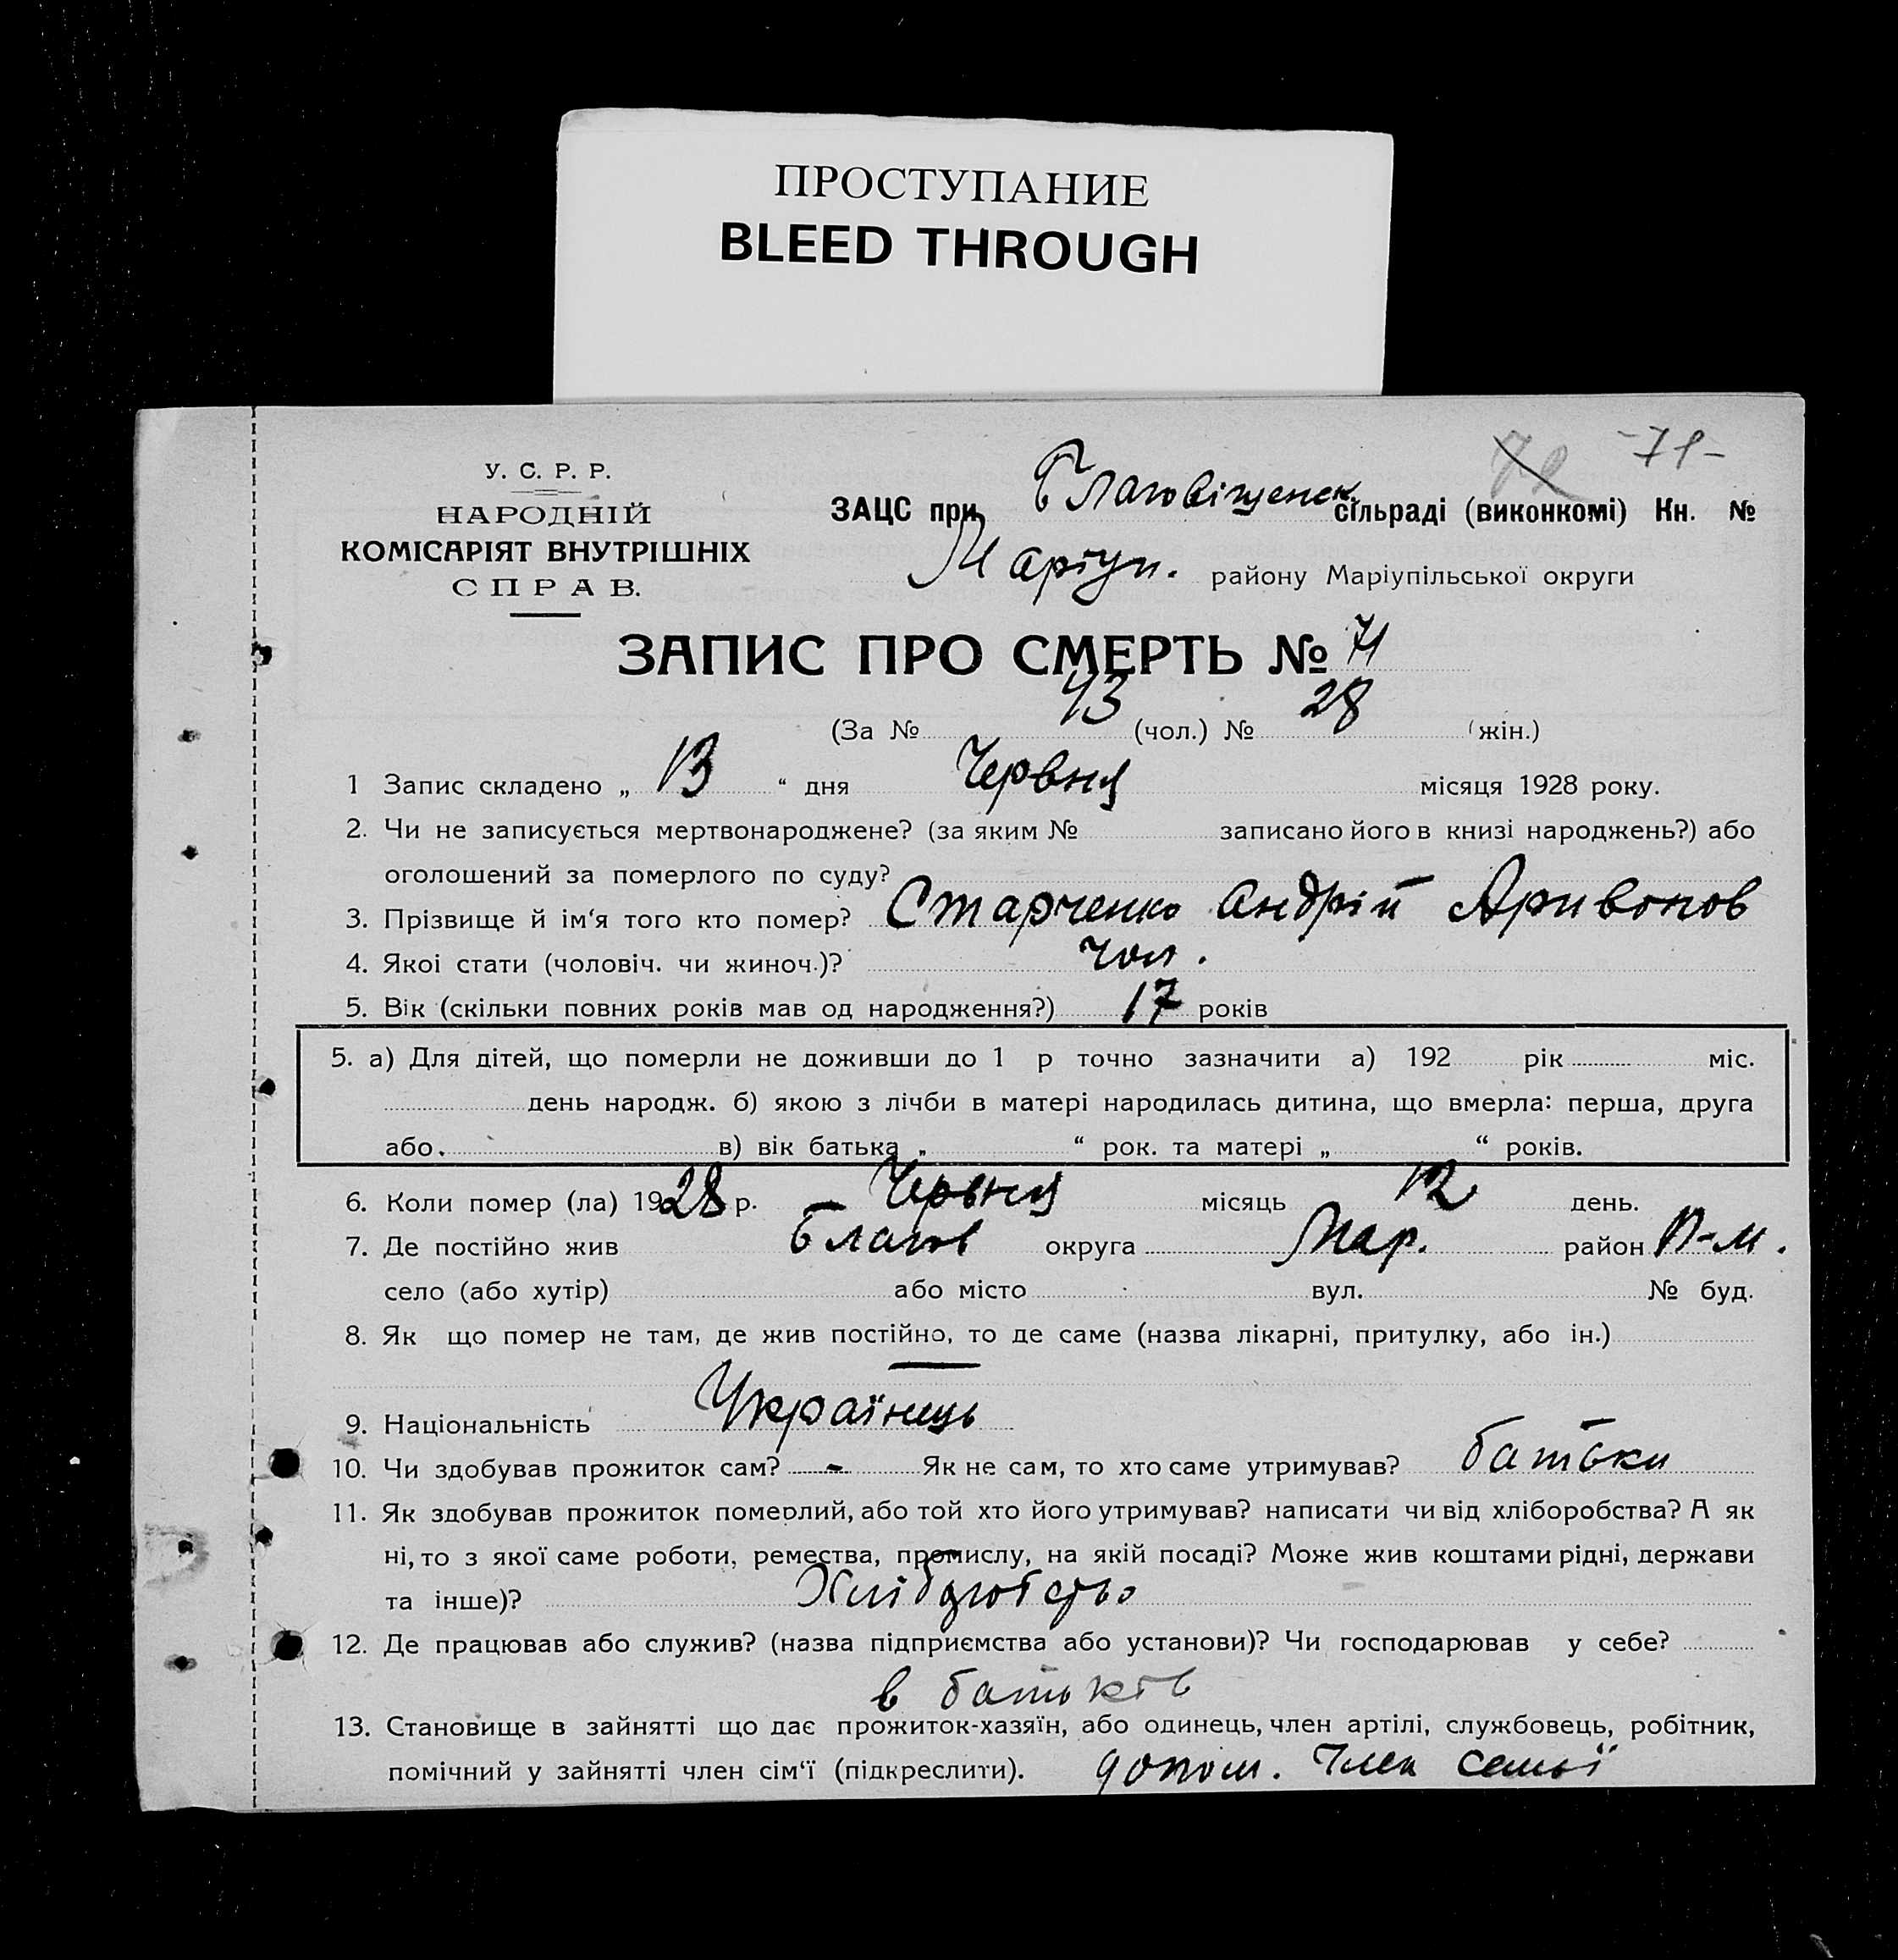 ПРОСТУПАНИЕ
BLEED THROUGH
72 -71-
У. С. Р. Р.
НАРОДНІЙ
КОМІСАРІЯТ ВНУТРІШНІХ
СПРАВ.
ЗАЦС при Благовіщенск сільраді (виконкомі) Кн. №
Маріуп. району Маріупільської округи
ЗАПИС ПРО СМЕРТЬ № 71
(За № 43 (чол.) № 28 (жін.)
1 Запис складено „ 13 “ дня Червня місяця 1928 року.
2. Чи не записується мертвонароджене? (за яким № записано його в книзі народжень?) або
оголошений за померлого по суду?
3. Прізвище й ім‘я того кто помер? Старченко Андрій
4. Якоі стати (чоловіч. чи жиноч.)? чол.
5. Вік (скільки повних років мав од народження?) 17 років
5. а) Для дітей, що померли не доживши до 1 р точно зазначити а) 192 рік міс.
день народж. б) якою з лічби в матері народилась дитина, що вмерла: перша, друга
або. в) вік батька „ “ рок. та матері „ “ років.
6. Коли помер (ла) 1928 р. Червня місяць 12 день.
7. Де постійно жив Благов округа Мар. район
село (або хутір) або місто вул. № буд.
8. Як що помер не там, де жив постійно, то де саме (назва лікарні, притулку, або ін.)
—
9. Національність Українець
10. Чи здобував прожиток сам? - Як не сам, то хто саме утримував? батьки
11. Як здобував прожиток померлий, або той хто його утримував? написати чи від хліборобства? А як
ні, то з якої саме роботи, ремества, промислу, на якій посаді? Може жив коштами рідні, держави
та інше)?
12. Де працював або служив? (назва підприємства або установи)? Чи господарював у себе?
в батьків
13. Становище в зайнятті що дає прожиток-хазяїн, або одинець, член артілі, службовець, робітник,
помічний у зайнятті член сім‘ї (підкреслити). допом. член семьї